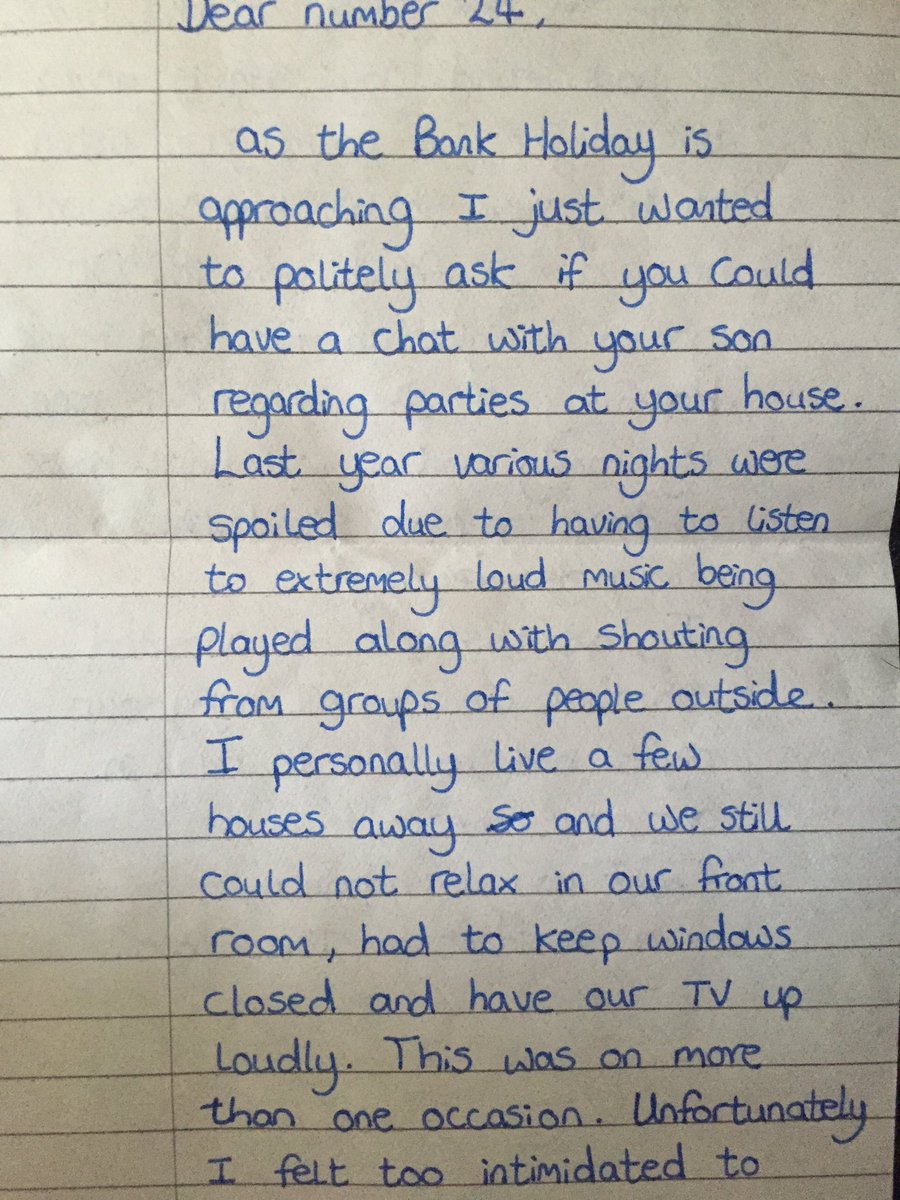 Dear number 24,
as the Bank Holiday is
approaching I just wanted
to politely ask if you could
have a chat with your son
regarding parties at your house.
Last year various nights were
spoiled due to having to listen
to extremely loud music being
played along with shouting
from groups of people outside.
I personally live a few
houses away so and we still
could not relax in our front
room, had to keep windows
closed and have our TV up
loudly. This was on more
than one occasion. Unfortunately
I felt too intimidated to